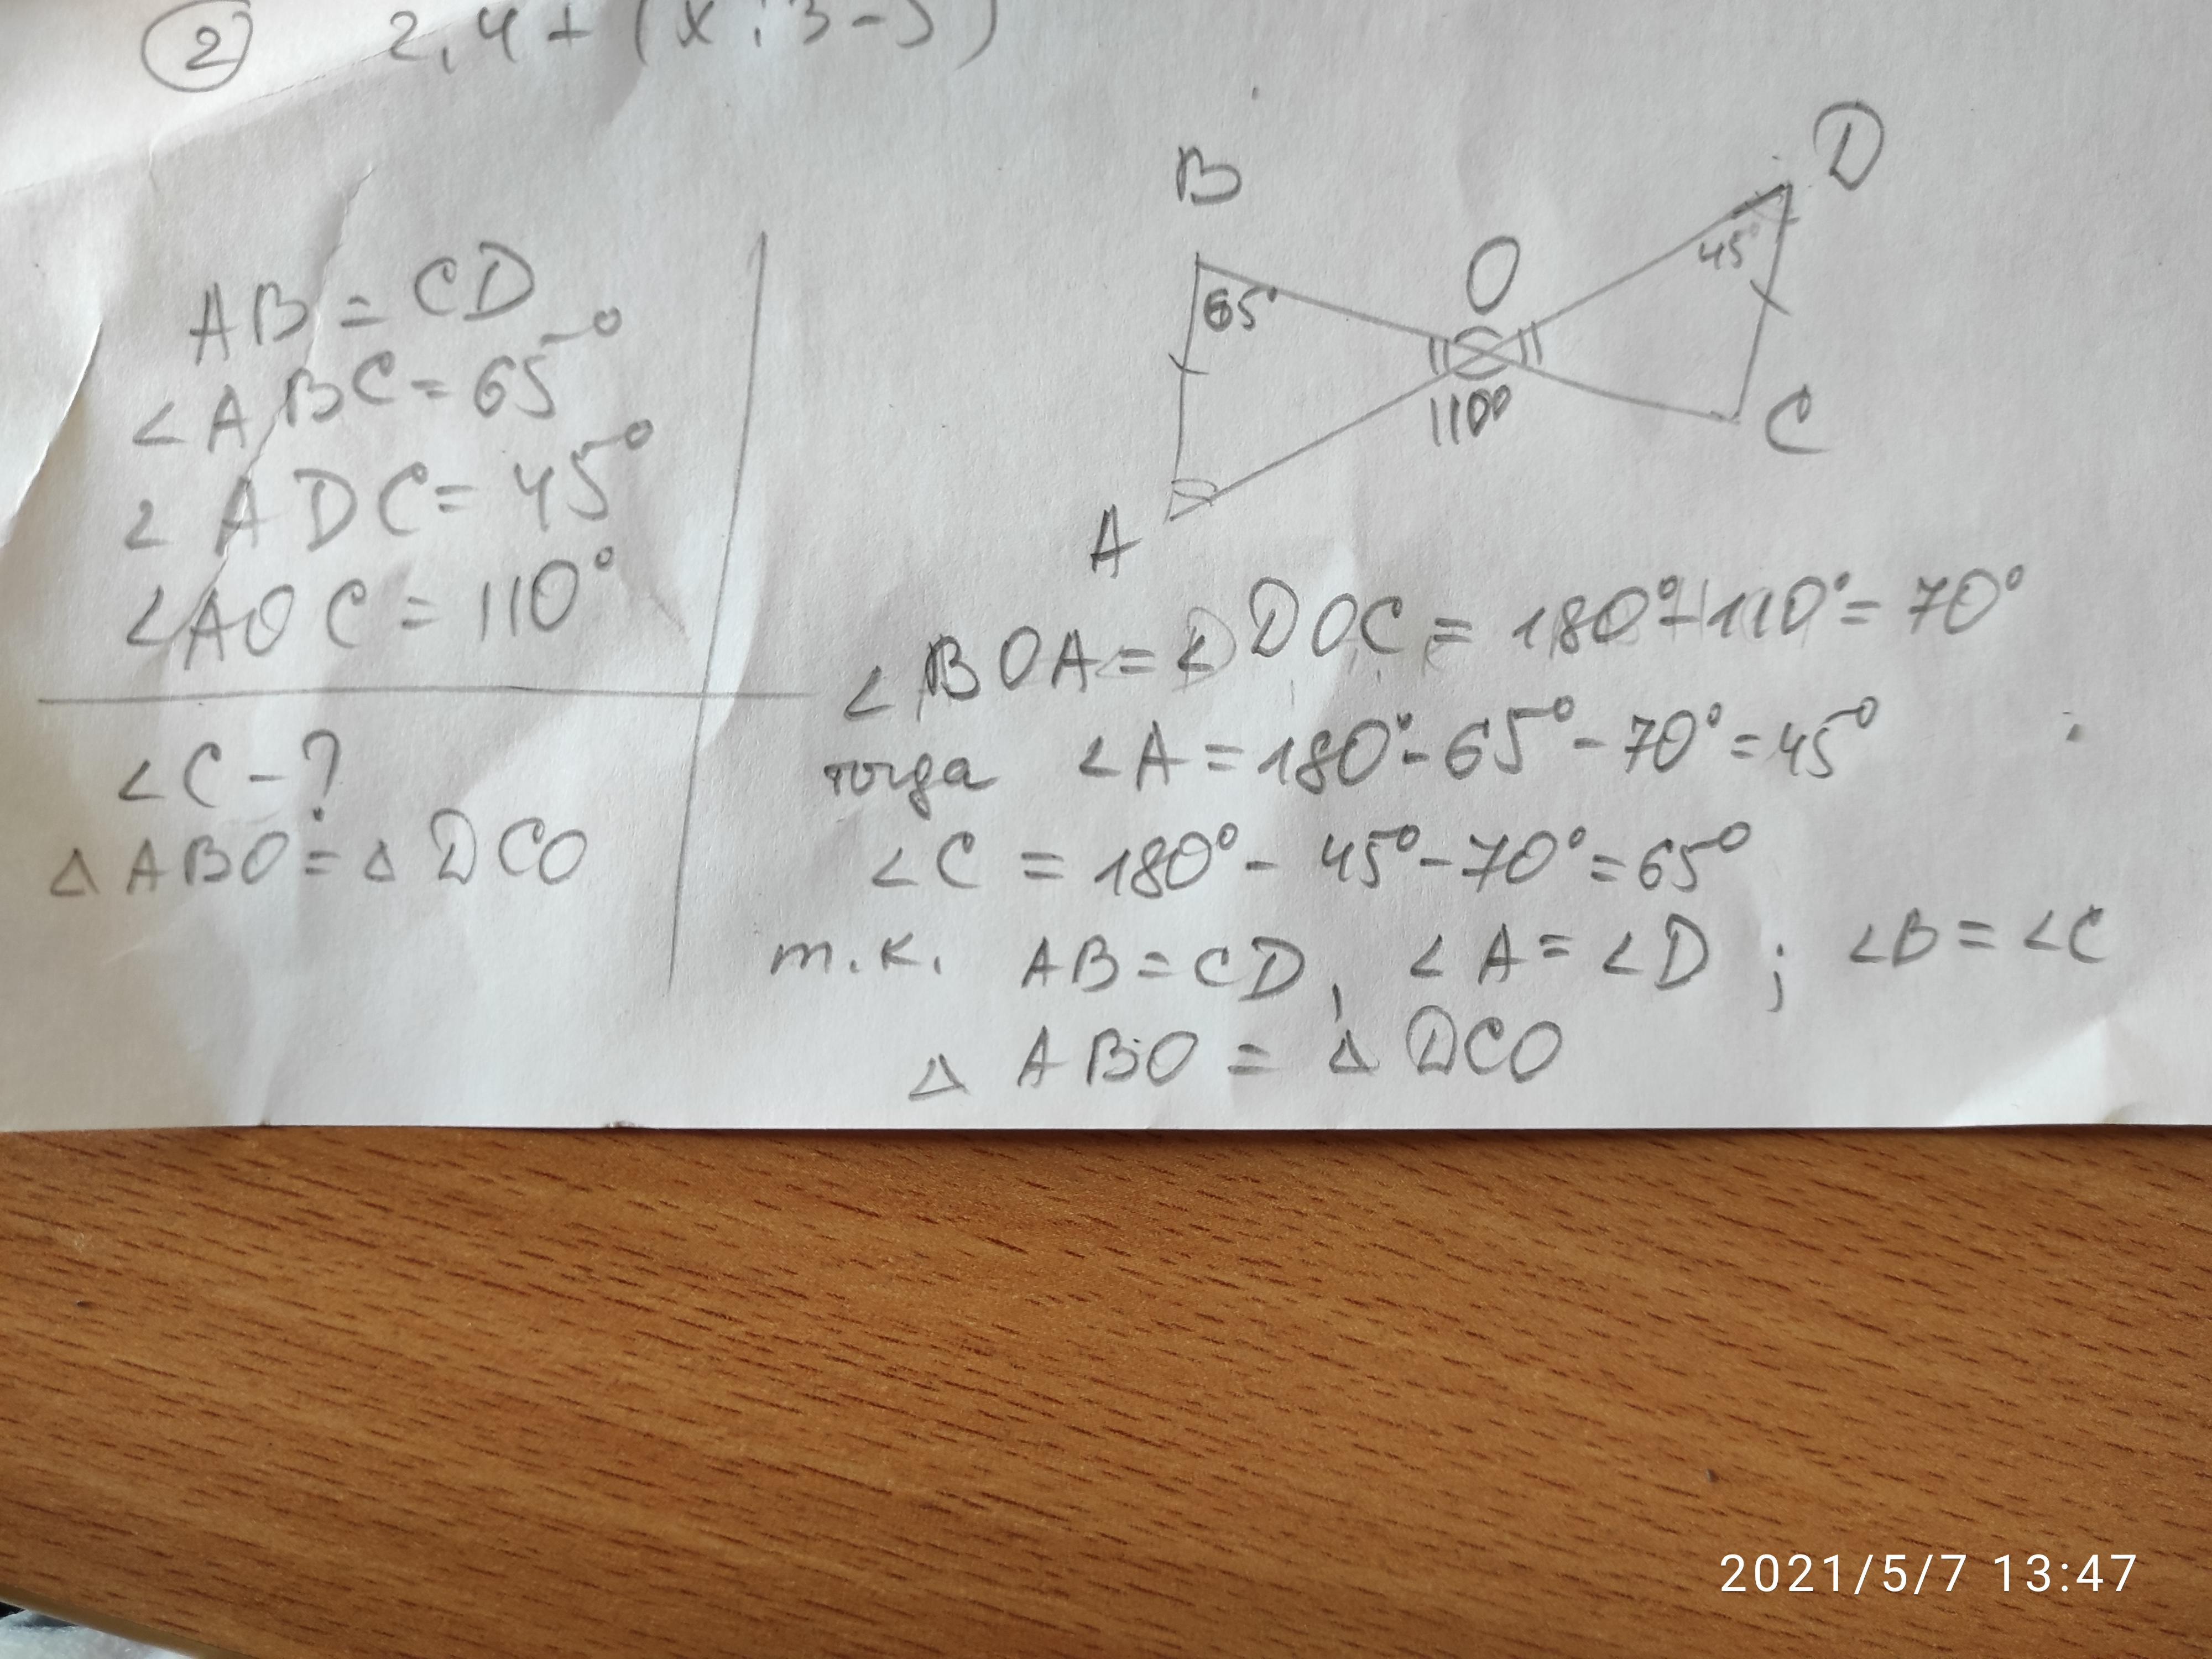 ② 2,4 + (x : 3 - 5)
AB = CD
∠ABC = 65°
∠ADC = 45°
∠AOC = 110°
∠C - ?
△ABO = △DCO
B
D
O
65°
45°
110°
C
A
∠BOA = ∠DOC = 180° - 110° = 70°
тогда ∠A = 180° - 65° - 70° = 45°
∠C = 180° - 45° - 70° = 65°
т.к. AB = CD, ∠A = ∠D ; ∠B = ∠C
△ABO = △DCO
2021/5/7 13:47